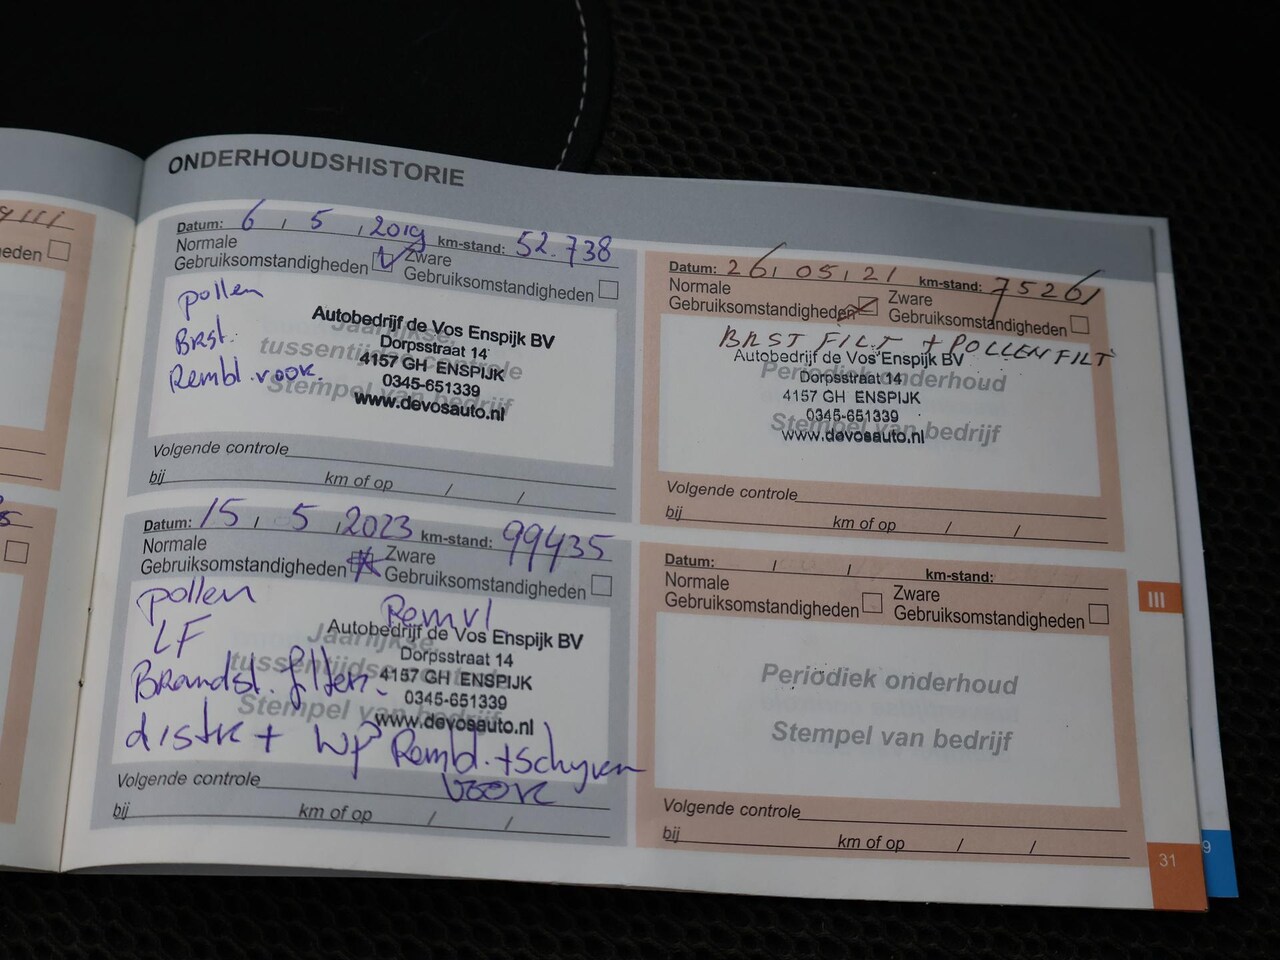 ONDERHOUDSHISTORIE
Datum: 6 , 5 , 2019 km-stand: 52.738
Normale
Gebruiksomstandigheden
Zware
Gebruiksomstandigheden
pollen
Brst.
Rembl. voor.
Jaarlijkse,
tussentijdse controle
Stempel van bedrijf
Autobedrijf de Vos Enspijk BV
Dorpsstraat 14
4157 GH ENSPIJK
0345-651339
www.devosauto.nl
Volgende controle
bij km of op / /
Datum: 26 , 05 , 21 km-stand: 75261
Normale
Gebruiksomstandigheden
Zware
Gebruiksomstandigheden
BRST FILT + POLLENFILT
Autobedrijf de Vos Enspijk BV
Dorpsstraat 14
4157 GH ENSPIJK
0345-651339
www.devosauto.nl
Periodiek onderhoud
Stempel van bedrijf
Volgende controle
bij km of op / /
Datum: 15 , 5 , 2023 km-stand: 99435
Normale
Gebruiksomstandigheden
Zware
Gebruiksomstandigheden
pollen Remvl
LF
Brandst. filter.
distr + Wp Rembl. + schijven
voor
Jaarlijkse,
tussentijdse
Stempel van bedrijf
Autobedrijf de Vos Enspijk BV
Dorpsstraat 14
4157 GH ENSPIJK
0345-651339
www.devosauto.nl
Volgende controle
bij km of op / /
Datum: / / km-stand:
Normale
Gebruiksomstandigheden
Zware
Gebruiksomstandigheden
Periodiek onderhoud
Stempel van bedrijf
Volgende controle
bij km of op / /
III
31
9
eden